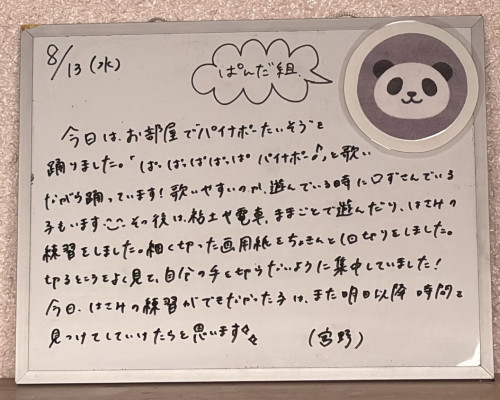 8/13(水)
ぱんだ組
今日は、お部屋でパイナポーたいそうを
踊りました。「ぱ、ぱ、ぱ、ぱ、ぱ パイナポー♪」と歌い
ながら踊っています!歌いやすいのか、遊んでいる時に口ずさんでいる
子もいます その後は、粘土や電車、ままごとで遊んだり、はさみの
練習をしました。細く切った画用紙をちょきんと1回切りをしました。
切るところをよく見て、自分の手を切らないように集中していました!
今日、はさみの練習ができなかった子は、また明日以降 時間を
見つけてしていけたらと思います
(宮野)